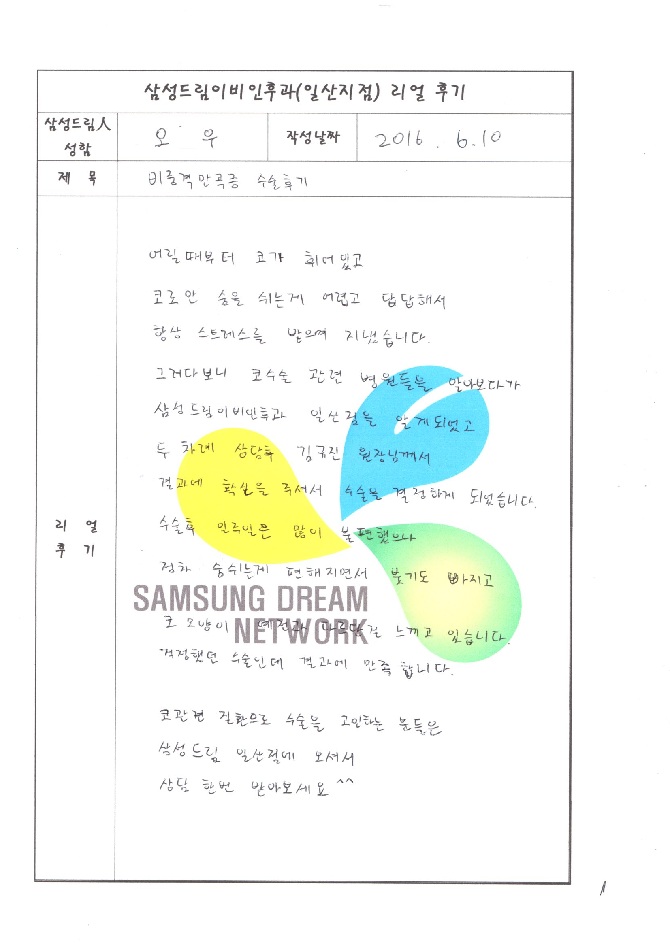 삼성드림이비인후과(일산지점) 리얼 후기
삼성드림人 성함
오 우
작성날짜
2016. 6.10
제 목
비중격만곡증 수술후기
리 얼 후 기
어릴때부터 코가 휘어있고
코로만 숨을 쉬는게 어렵고 답답해서
항상 스트레스를 받으며 지냈습니다.
그러다보니 코수술 관련 병원들을 알아보다가
삼성드림이비인후과 일산점을 알게되었고
두 차례 상담후 김규진 원장님께서
결과에 확신을 주셔서 수술을 결정하게 되었습니다.
수술후 일주일은 많이 불편했으나
점차 숨쉬는게 편해지면서 붓기도 빠지고
코 모양이 예전과 다르단걸 느끼고 있습니다.
걱정했던 수술인데 결과에 만족 합니다.
코관련 질환으로 수술을 고민하는 분들은
삼성드림 일산점에 오셔서
상담 한번 받아보세요 ^^
SAMSUNG DREAM
NETWORK